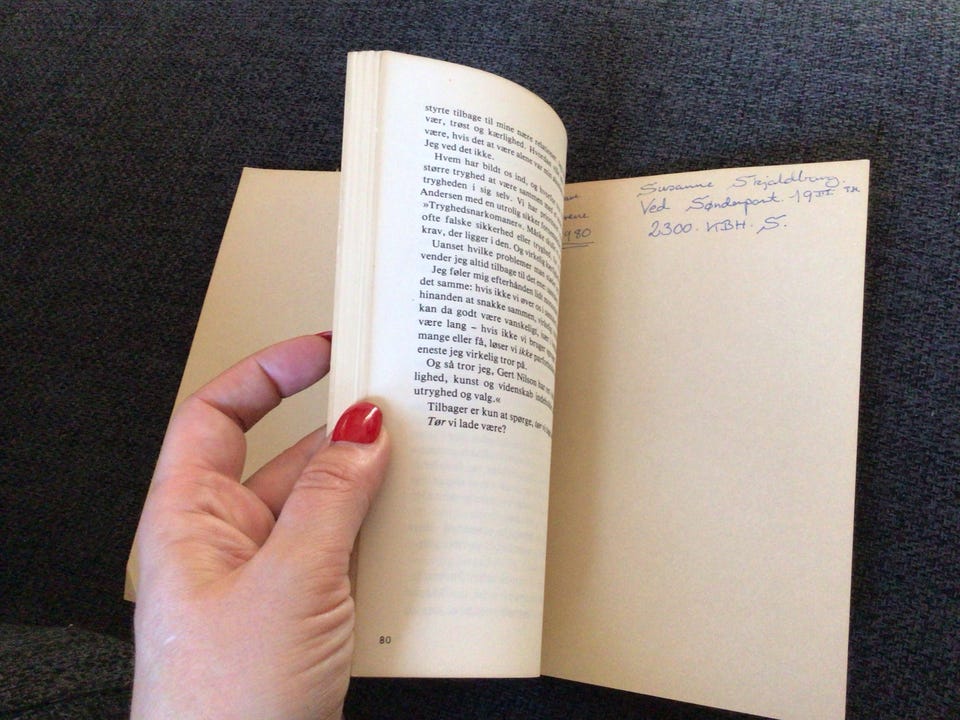 styrte tilbage til mine nære relationer,
vær, trøst og kærlighed. Hvordan ville
være, hvis det at være alene var min
Jeg ved det ikke.
Hvem har bildt os ind, og hvorfor
større tryghed at være sammen med
trygheden i sig selv. Vi har
Andersen med en utrolig sikker
»Tryghedsnarkomaner«. Måske skulle
ofte falske sikkerhed eller tryghed,
krav, der ligger i den. Og virkelig
Uanset hvilke problemer man
vender jeg altid tilbage til det ene:
Jeg føler mig efterhånden lidt
det samme: hvis ikke vi øver os i
hinanden at snakke sammen, virkelig
kan da godt være vanskeligt, svært
være lang – hvis ikke vi bruger
mange eller få, løser vi ikke
eneste jeg virkelig tror på.
Og så tror jeg, Gert Nilson har ret
lighed, kunst og videnskab
utryghed og valg.«
Tilbager er kun at spørge, tør vi
Tør vi lade være?
80
1980
Susanne Skjaldborg.
Ved Sønderport. 19III T.H.
2300. KBH. S.